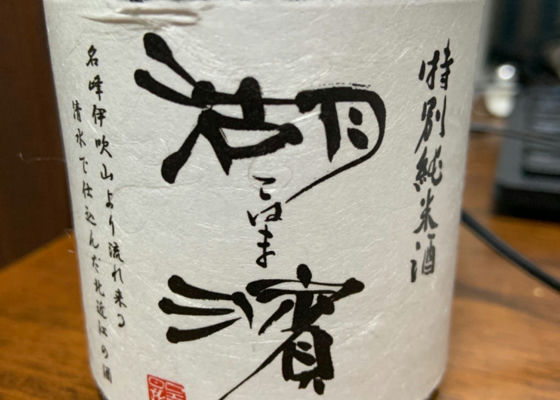 特別純米酒
湖濱
こはま
名峰伊吹山より流れ来る
清水で仕込んだ北近江の酒